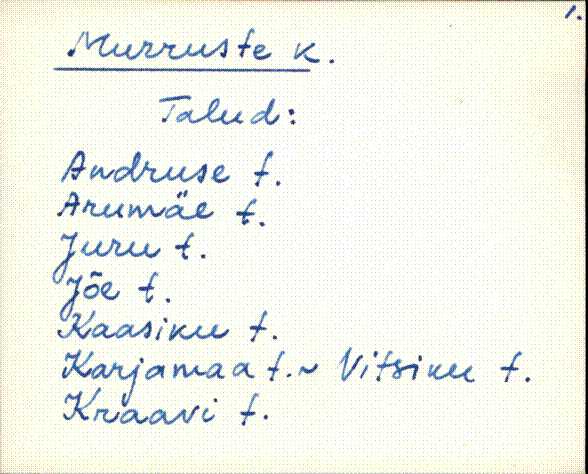 1.
Murruste k.
Talud:
Andruse t.
Arumäe t.
Juru t.
Jõe t.
Kaasiku t.
Karjamaa t. ~ Vitsiku t.
Kraavi t.